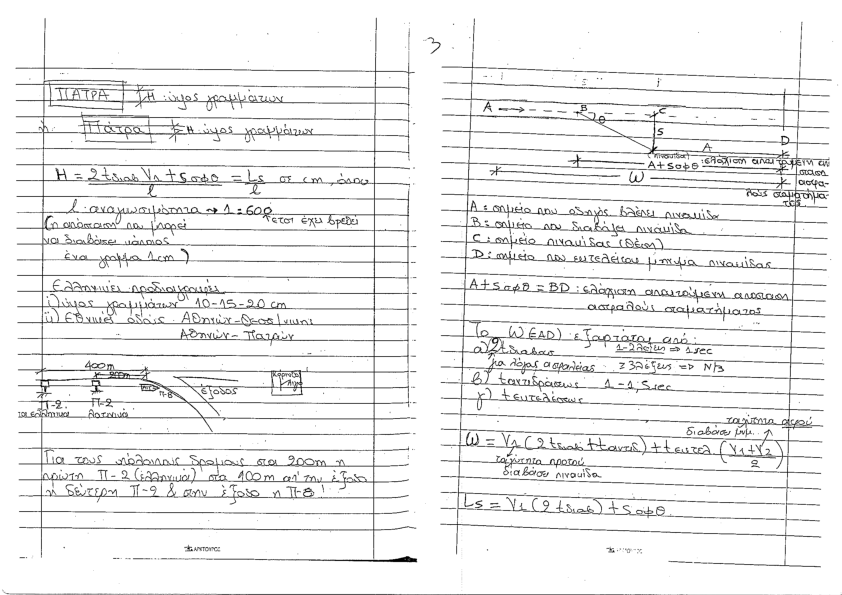 3
ΠΑΤΡΑ H : ύψος γραμμάτων
ή Πάτρα H : ύψος γραμμάτων
H = 2tδιαβ V1 + Sσφθ / l = Ls / l σε cm, όπου
l : αναγνωσιμότητα → 1 = 600
(η απόσταση που μπορεί έτσι έχει βρεθεί
να διαβάσει κάποιος
ένα γράμμα 1cm)
Ελληνικές προδιαγραφές
i) ύψος γραμμάτων 10-15-20 cm
ii) Εθνικές οδοίς Αθηνών-Θεσ/νίκης
Αθηνών-Πατρών
400m
200m
Π-8
έξοδος
Π-2 Π-2
τα ελληνικά λατινικά
Για τους κύκλους δρόμους στα 200m η
πρώτη Π-2 (ελληνικά) στα 400m απ' την έξοδο
η δεύτερη Π-2 & στην έξοδο η Π-8!
A B C
θ
S
A D
(πινακίδα)
A + Sσφθ : ελάχιστη απαιτούμενη από
σταση
ασφα
λούς σταματήμα
τος
W
A : σημείο που οδηγός βλέπει πινακίδα
B : σημείο που διαβάζει πινακίδα
C : σημείο πινακίδας (θέση)
D : σημείο που εκτελείται μήνυμα πινακίδας
A + Sσφθ = BD : ελάχιστη απαιτούμενη απόσταση
ασφαλούς σταματήματος
Το W(≡AD) εξαρτάται από:
α) 2tδιαβασ 1-2 λέξεις ⇒ 1 sec
για λόγους ασφαλείας ≥3 λέξεις ⇒ N/3
β) tαντιδράσεως 1-1,5 sec
γ) tεκτελέσεως
ταχύτητα αφού
διαβάσει μην.
W = V1 (2tδιαβ + tαντιδ) + tεκτελ (V1+V2 / 2)
ταχύτητα προτού
διαβάσει πινακίδα
Ls = V1 (2tδιαβ) + Sσφθ